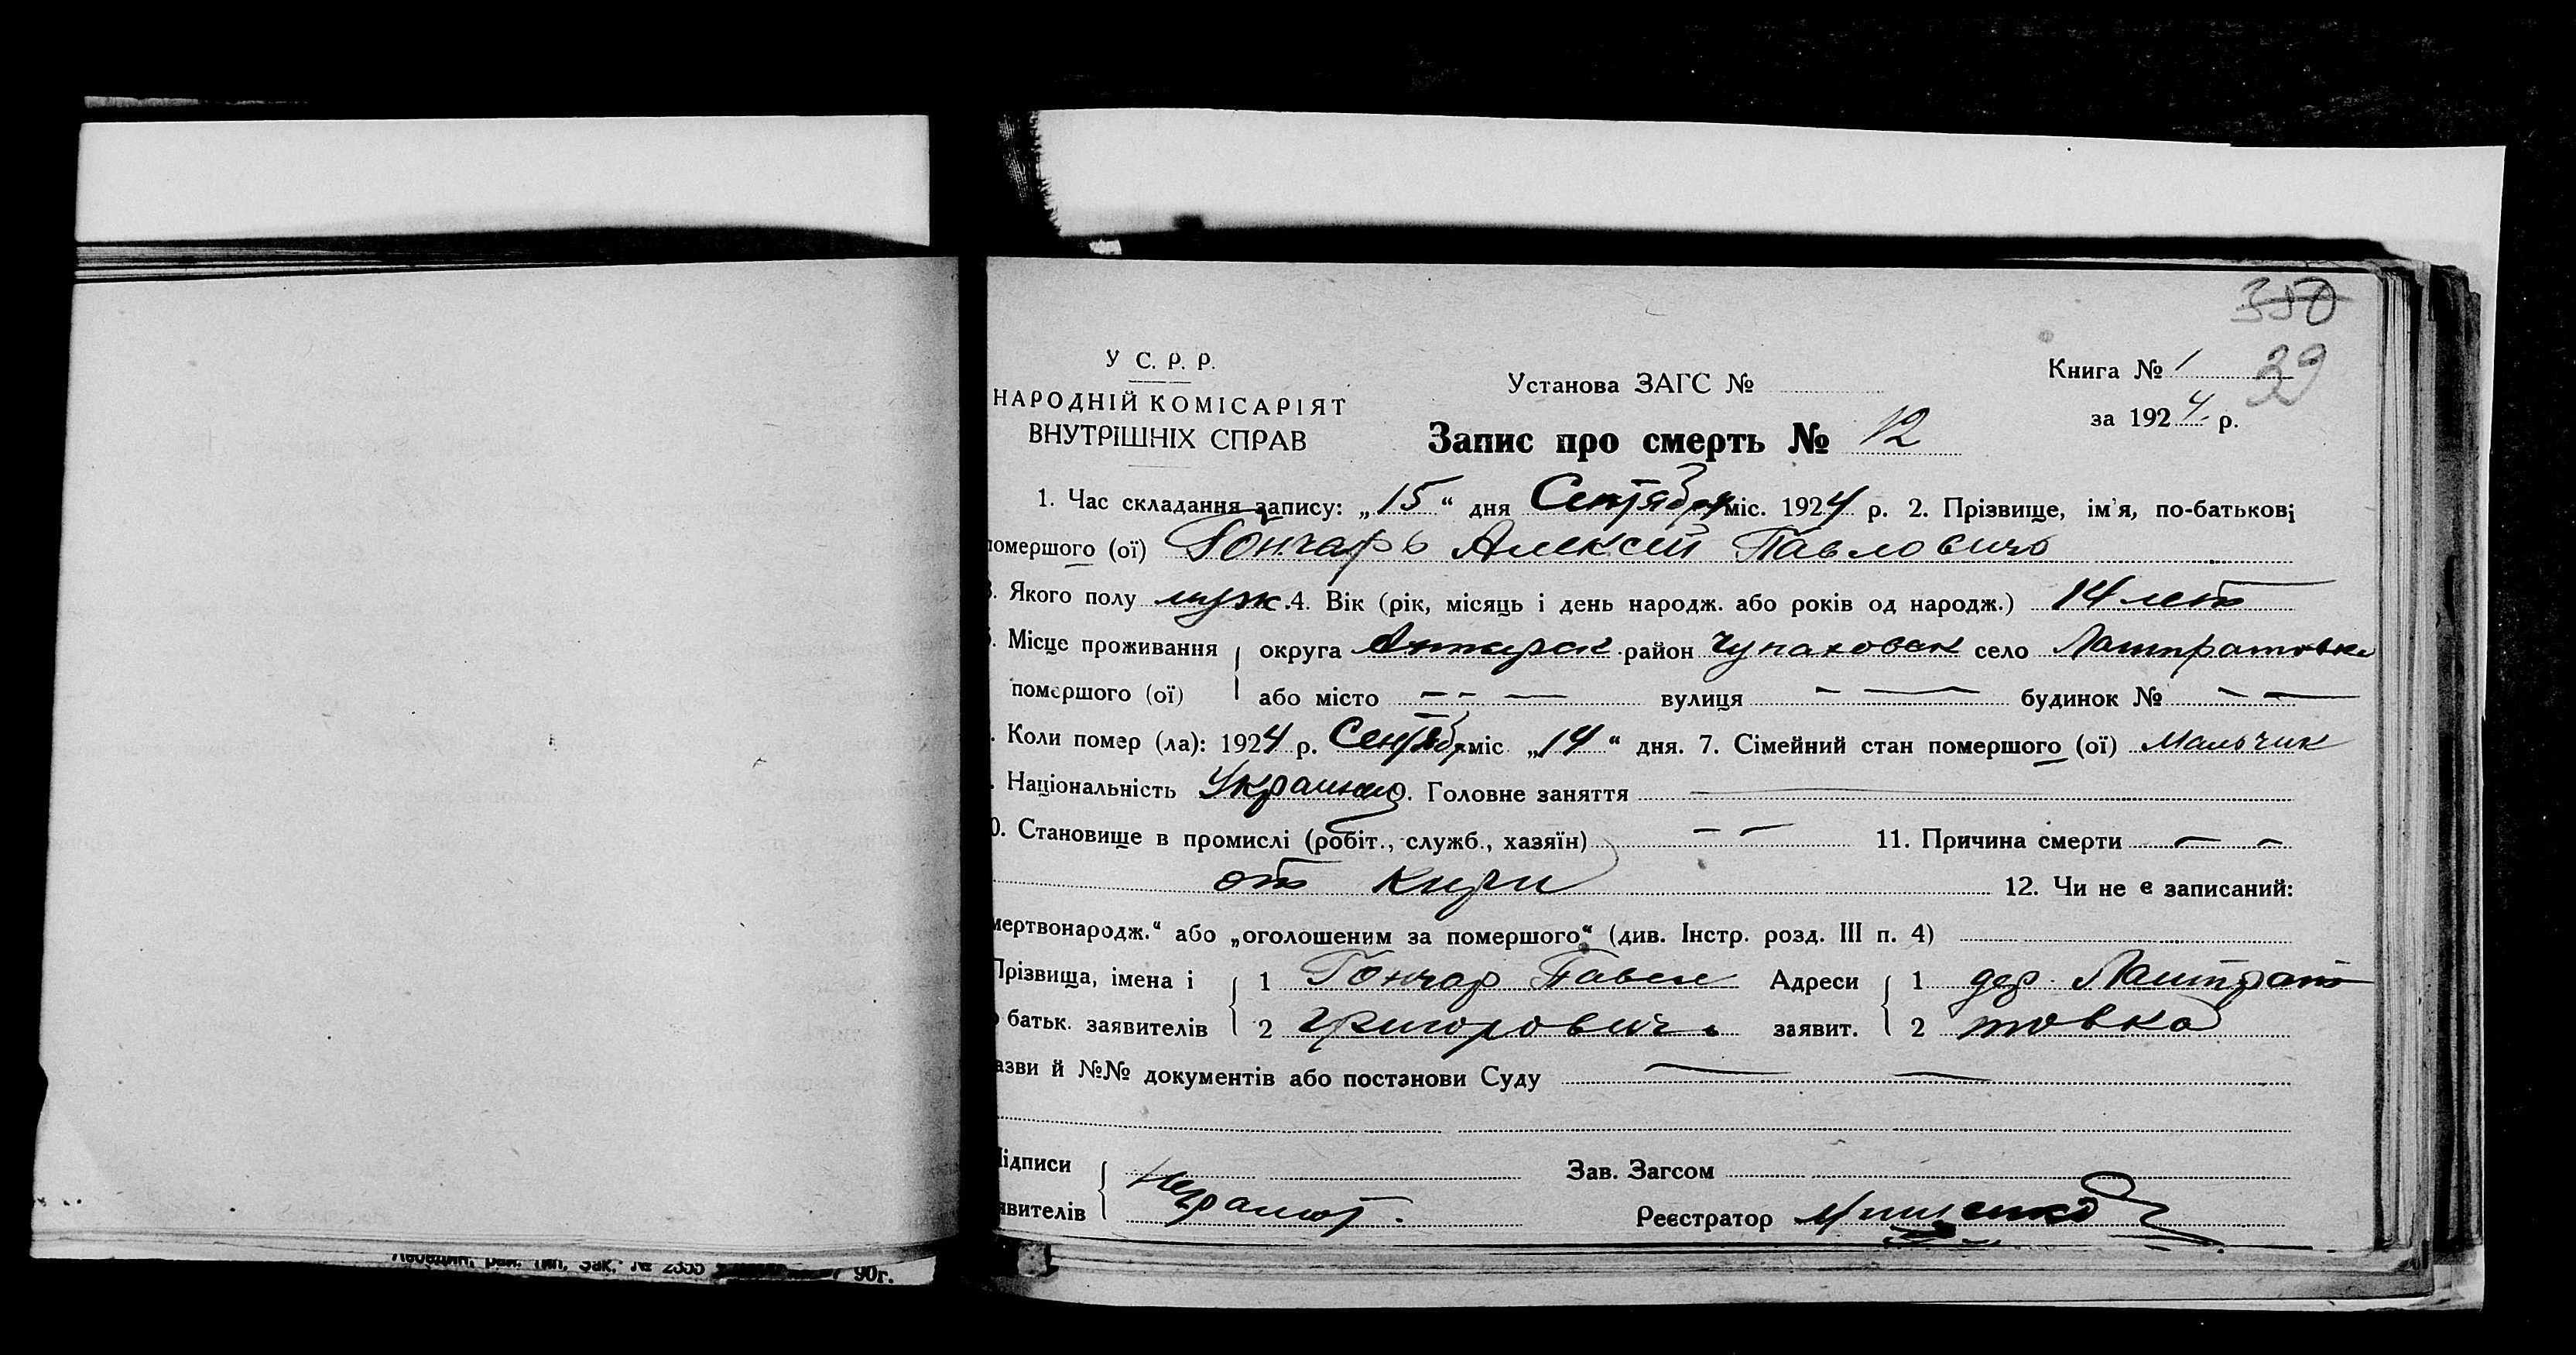 350
У С. Р. Р.
НАРОДНІЙ КОМІСАРІЯТ
ВНУТРІШНІХ СПРАВ
Установа ЗАГС №
Книга № 1
39
за 1924 р.
Запис про смерть № 12
1. Час складання запису: „15“ дня Сентября міс. 1924 р. 2. Прізвище, ім'я, по-батькові
помершого (ої) Гончаръ Алексей Павловичъ
3. Якого полу муж. 4. Вік (рік, місяць і день народж. або років од народж.) 14 летъ
5. Місце проживання округа район Чупаховск село
помершого (ої) або місто — — вулиця — — будинок № — —
. Коли помер (ла): 1924 р. Сентяб. міс „14“ дня. 7. Сімейний стан помершого (ої) Мальчик
. Національність Украинец 9. Головне заняття —
0. Становище в промислі (робіт., служб., хазяїн) — — 11. Причина смерти — —
от 12. Чи не є записаний:
мертвонародж.“ або „оголошеним за помершого“ (див. Інстр. розд. III п. 4)
Прізвища, імена і 1 Гончар Павел Адреси 1 дер.
о батьк. заявителів 2 Григорович заявит. 2 товка
азви й №№ документів або постанови Суду — —
Підписи Неграмот. Зав. Загсом
явителів Реєстратор
Лебедин, рай. тип, Зак. № 2355 90г.